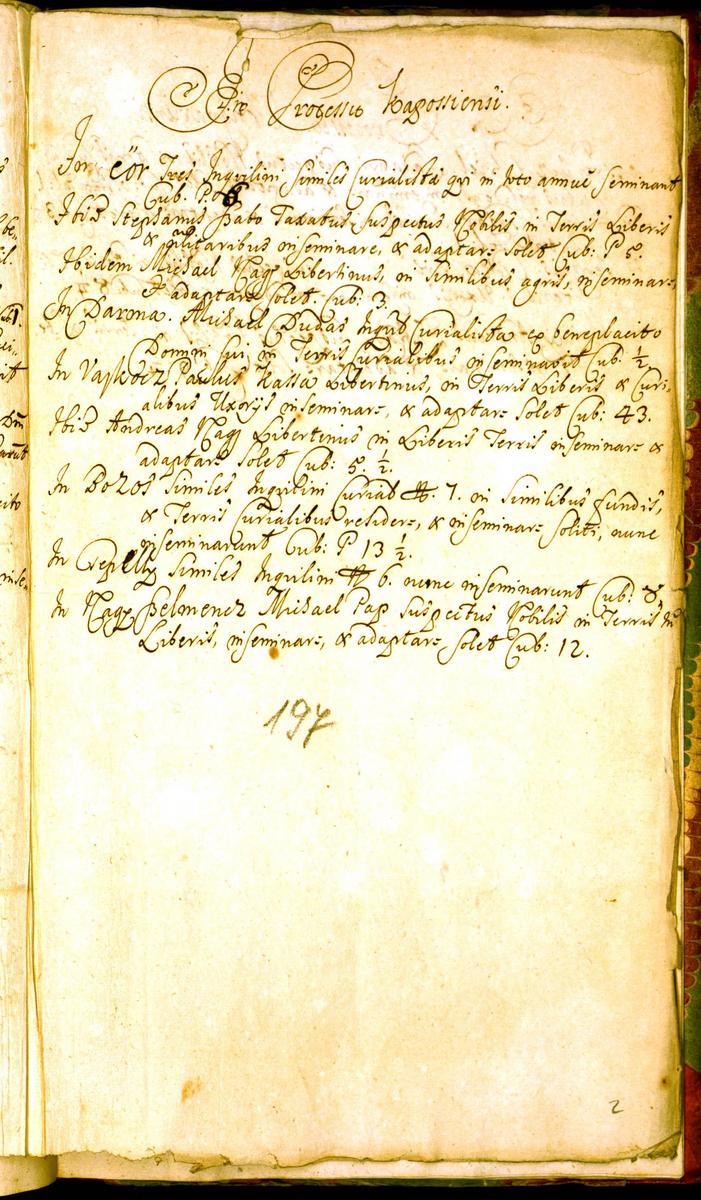 Pro Processu Kapossiensi.
In Eör Tres Inquilini similes Curialistae qui in toto annuē seminant
Cub. P. 6
Ibid Stephanus Szabo Taxatus suspectus Nobilis in Terris Liberis
& militaribus inseminare, & adaptare solet Cub: P 5.
Ibidem Michael Nagy Libertinus, in similibus agris, inseminare,
& adaptare solet. Cub: 3.
In Darma. Michael Dudas Inquil Curialista ex beneplacito
Domini sui, in Terris Curialibus inseminavit Cub. ½.
In Vajkocz Paulus Kassa Libertinus, in Terris Liberis & Curi-
alibus Uxorijs inseminare, & adaptare solet Cub: 43.
Ibid Andreas Nagy Libertinus in Liberis Terris inseminare &
adaptare solet Cub: 5. ½.
In Bozos Similes Inquilini Curial 7. in similibus fundis,
& Terris Curialibus residere, & inseminare soliti, nunc
inseminarunt Cub: P 13 ½.
In Csepelly Similes Inquilini 6. nunc inseminarunt Cub: 8
In Nagy Szelmencz Michael Pap Suspectus Nobilis in Terris
Liberis, inseminare, & adaptare solet Cub: 12.
197
2